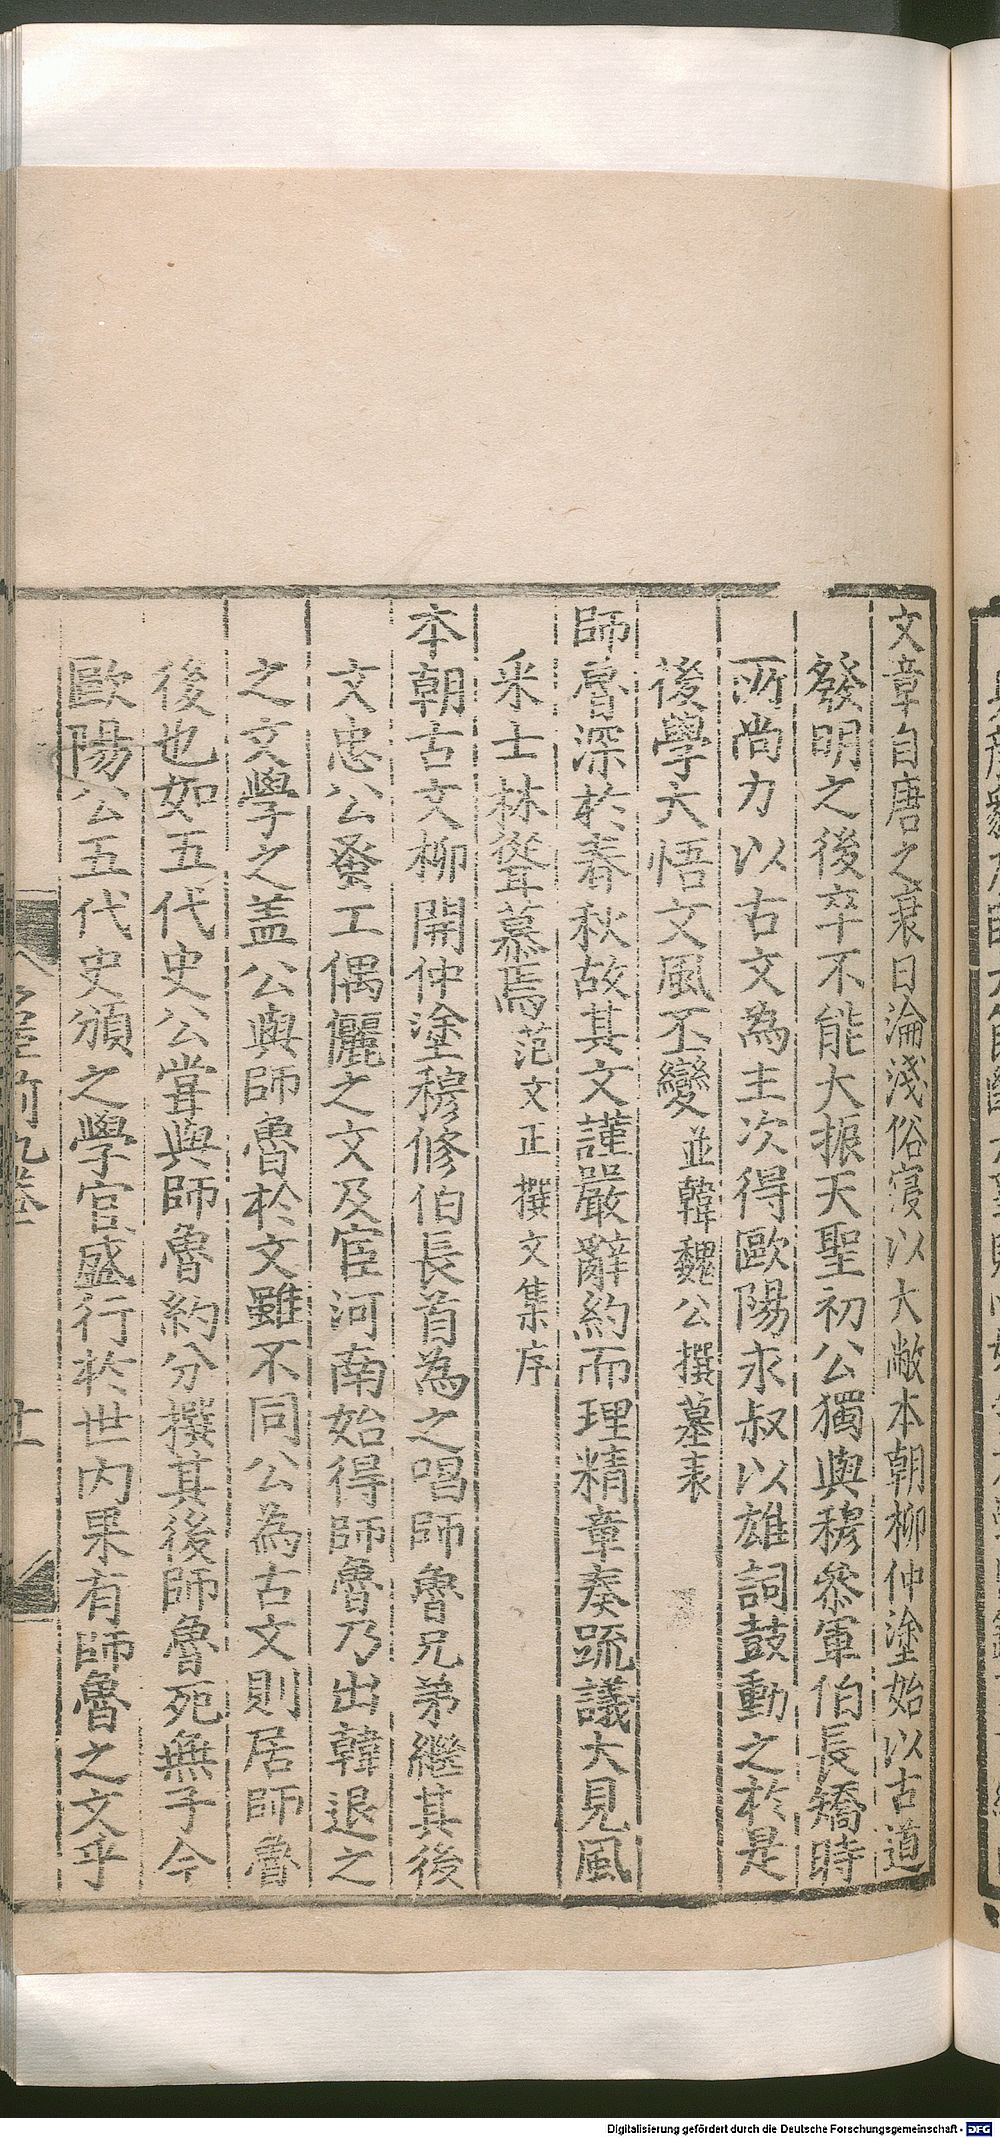 文章自唐之衰日淪淺俗寖以大敝本朝柳仲塗始以古道
發明之後卒不能大振天聖初公獨與穆參軍伯長矯時
所尚力以古文為主次得歐陽永叔以雄詞鼓動之於是
後學大悟文風丕變並韓魏公撰墓表
師魯深於春秋故其文謹嚴辭約而理精章奏疏議大見風
釆士林聳慕焉范文正撰文集序
本朝古文柳開仲塗穆修伯長首為之唱師魯兄弟繼其後
文忠公蚤工偶儷之文及官河南始得師魯乃出韓退之
之文學之盖公與師魯於文雖不同公為古文則居師魯
後也如五代史公甞與師魯約分撰其後師魯死無子今
歐陽公五代史頒之學官盛行於世內果有師魯之文乎
名臣前九卷
廿一
Digitalisierung gefördert durch die Deutsche Forschungsgemeinschaft - DFG